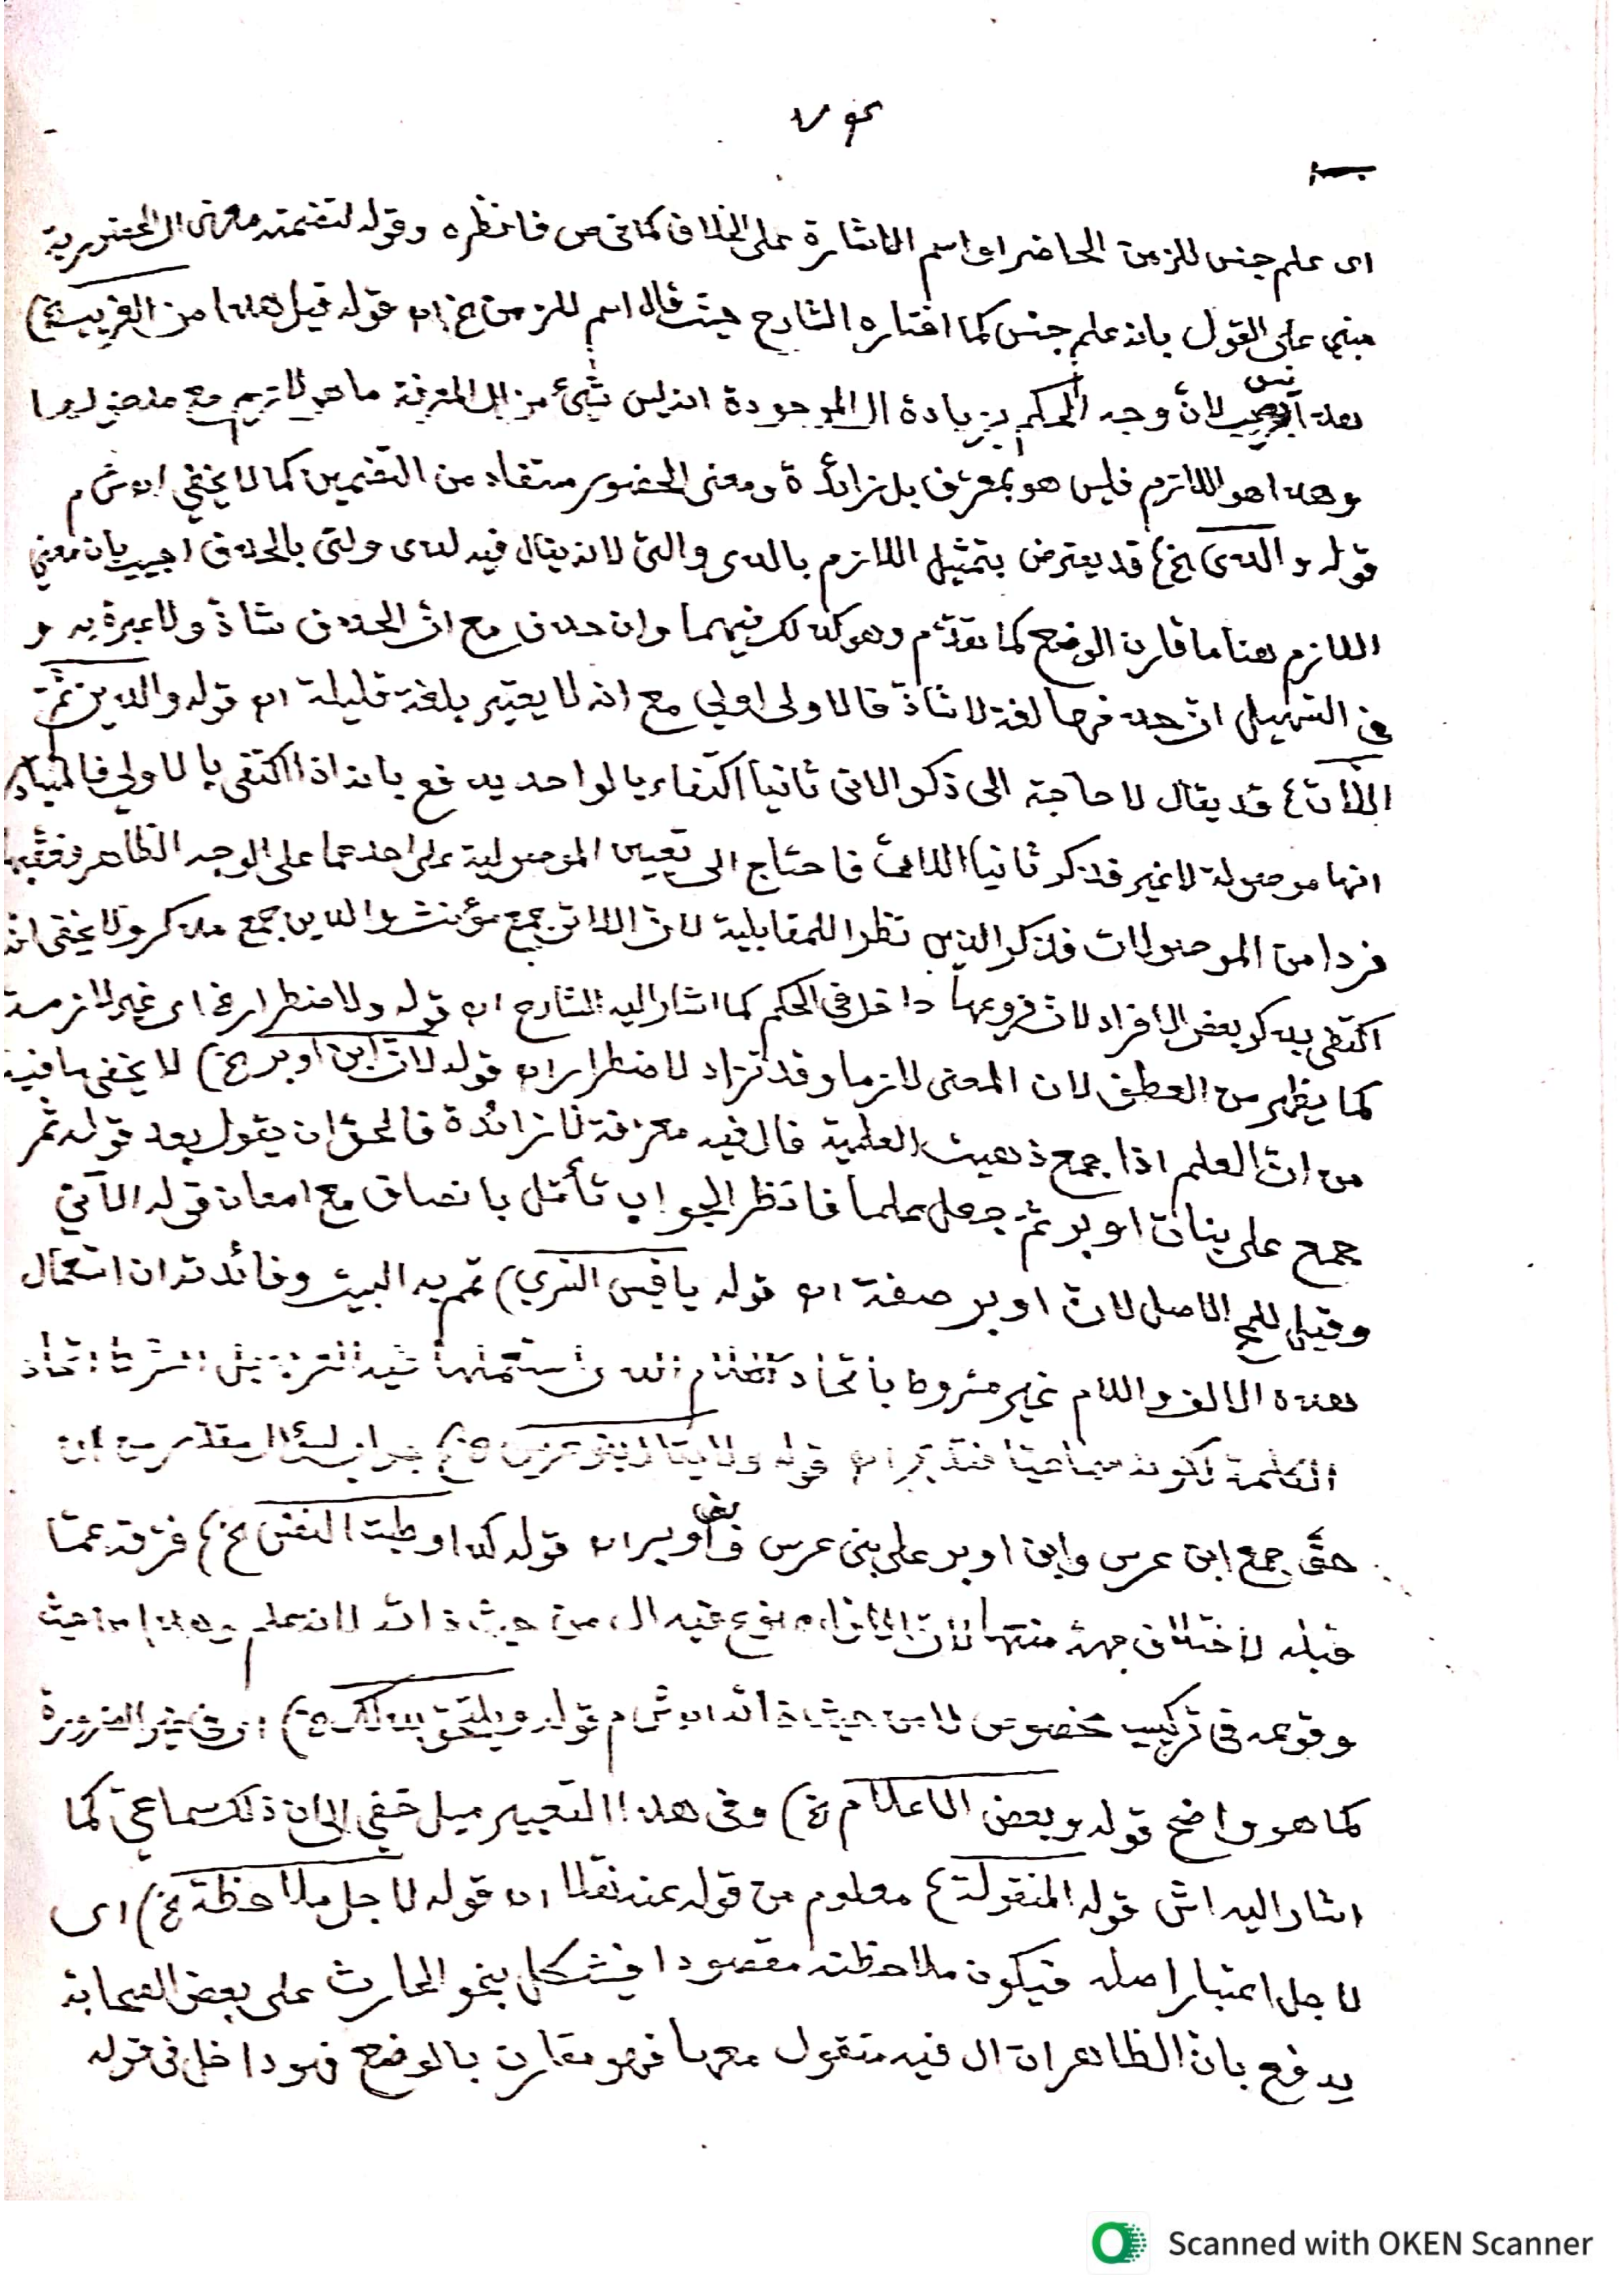 ٧٤
اى علم جنس للزمن الحاضر او اسم الاشارة على الخلاف كما فى ص فانظره وقوله لتضمنه معنى ال الحضورية
مبني على القول بانه علم جنس كما اختاره الشارح حيث قال اسم للزمن الخ اه قوله قيل هذا من الغريب الخ)
هذا ليس بعجيب لانّ وجه الحكم بزيادة ال الموجودة انه ليس شيئ من ال المعرفة ما هو لازم مع مدخولها
وهذا هو اللازم فليس هو بمعرف بل زائدة ومعنى الحضور مستفاد من التضمين كما لا يخفي اه ش م
قوله والذى الخ) قد يعترض بتمثيل اللازم بالذى والتى لانه يقال فيه لذى ولتى بالحذف اجيب بان معني
اللازم هنا ما قارن الوضع كما تقدّم وهو كذلك فيهما وان حذف مع انّ الحذف شاذّ ولا عبرة به و
في التسهيل انّ حذفها لغة لا شاذّ فالاولى اولي مع انه لا يعتبر بلغة قليلة اه قوله والذين ثمّ
اللاّت) قد يقال لا حاجة الى ذكر الاتى ثانيا اكتفاء بالواحد يدفع بانه اذا اكتفى بالاولي فالمتبادر
انها موصولة لا غير فذكر ثانيا اللات فاحتاج الى تعيين الموصولية على احدهما على الوجه الظاهر فعقّبها
فردا من الموصولات فذكر الذين نظرا للمقابلية لان اللاتى جمع مؤنث والذين جمع مذكر ولا يخفى انه
اكتفى بذكر بعض الافراد لان فروعها داخل فى الحكم كما اشار اليه الشارح اه قوله ولاضطرار الخ اى غير لازمة
كما يظهر من العطف لان المعنى لازما وقد تزاد لاضطرار اه قوله لانّ ابن اوبر الخ) لا يخفى ما فيه
من انّ العلم اذا جمع ذهبت العلمية فال فيه معرفة لا زائدة فالحق ان يقول بعد قوله ثم
جمع على بنات اوبر ثمّ جعل علما فانظر الجواب تأمّل بانصاف مع امعان قوله الآتي
وقيل للمح الاصل لانّ اوبر صفة اه قوله يا قيس السري) تمم به البيت وفائدته ان استعمال
هذه الالف واللام غير مشروط باتحاد الكلام الذى استعملها فيه العرب بل الشرط اتحاد
الكلمة لكونه سماعيّا فتدبّر اه قوله ولا يقال بنو عرس الخ) جواب لسؤال مقدّر من ان
حقّ جمع ابن عرس وابن اوبر على بنى عرس وبنى اوبر اه قوله كذا وطبت النفس الخ) فرّقه عمّا
قبله لاختلاف جهة منعها لانّ الاول ممنوع فيه ال من حيث ذاته لانه علم وهذا من حيث
وقوعه فى تركيب مخصوص لا من حيث ذاته اه ش م قوله ويلتحق بذلك الخ) اى فى غير الضرورة
كما هو واضح قوله وبعض الاعلام الخ) وفى هذا التعبير ميل خفي الى ان ذلك سماعيّ كما
اشار اليه اش قوله المنقولة) معلوم من قوله عنه نقلا اه قوله لاجل ملاحظة الخ) اى
لاجل اعتبار اصله فيكون ملاحظته مقصودا فيشكل بنحو الحارث على بعض الصحابة
يدفع بان الظاهر ان ال فيه منقول معها فهو مقارن بالوضع فهو داخل فى قوله
Scanned with OKEN Scanner